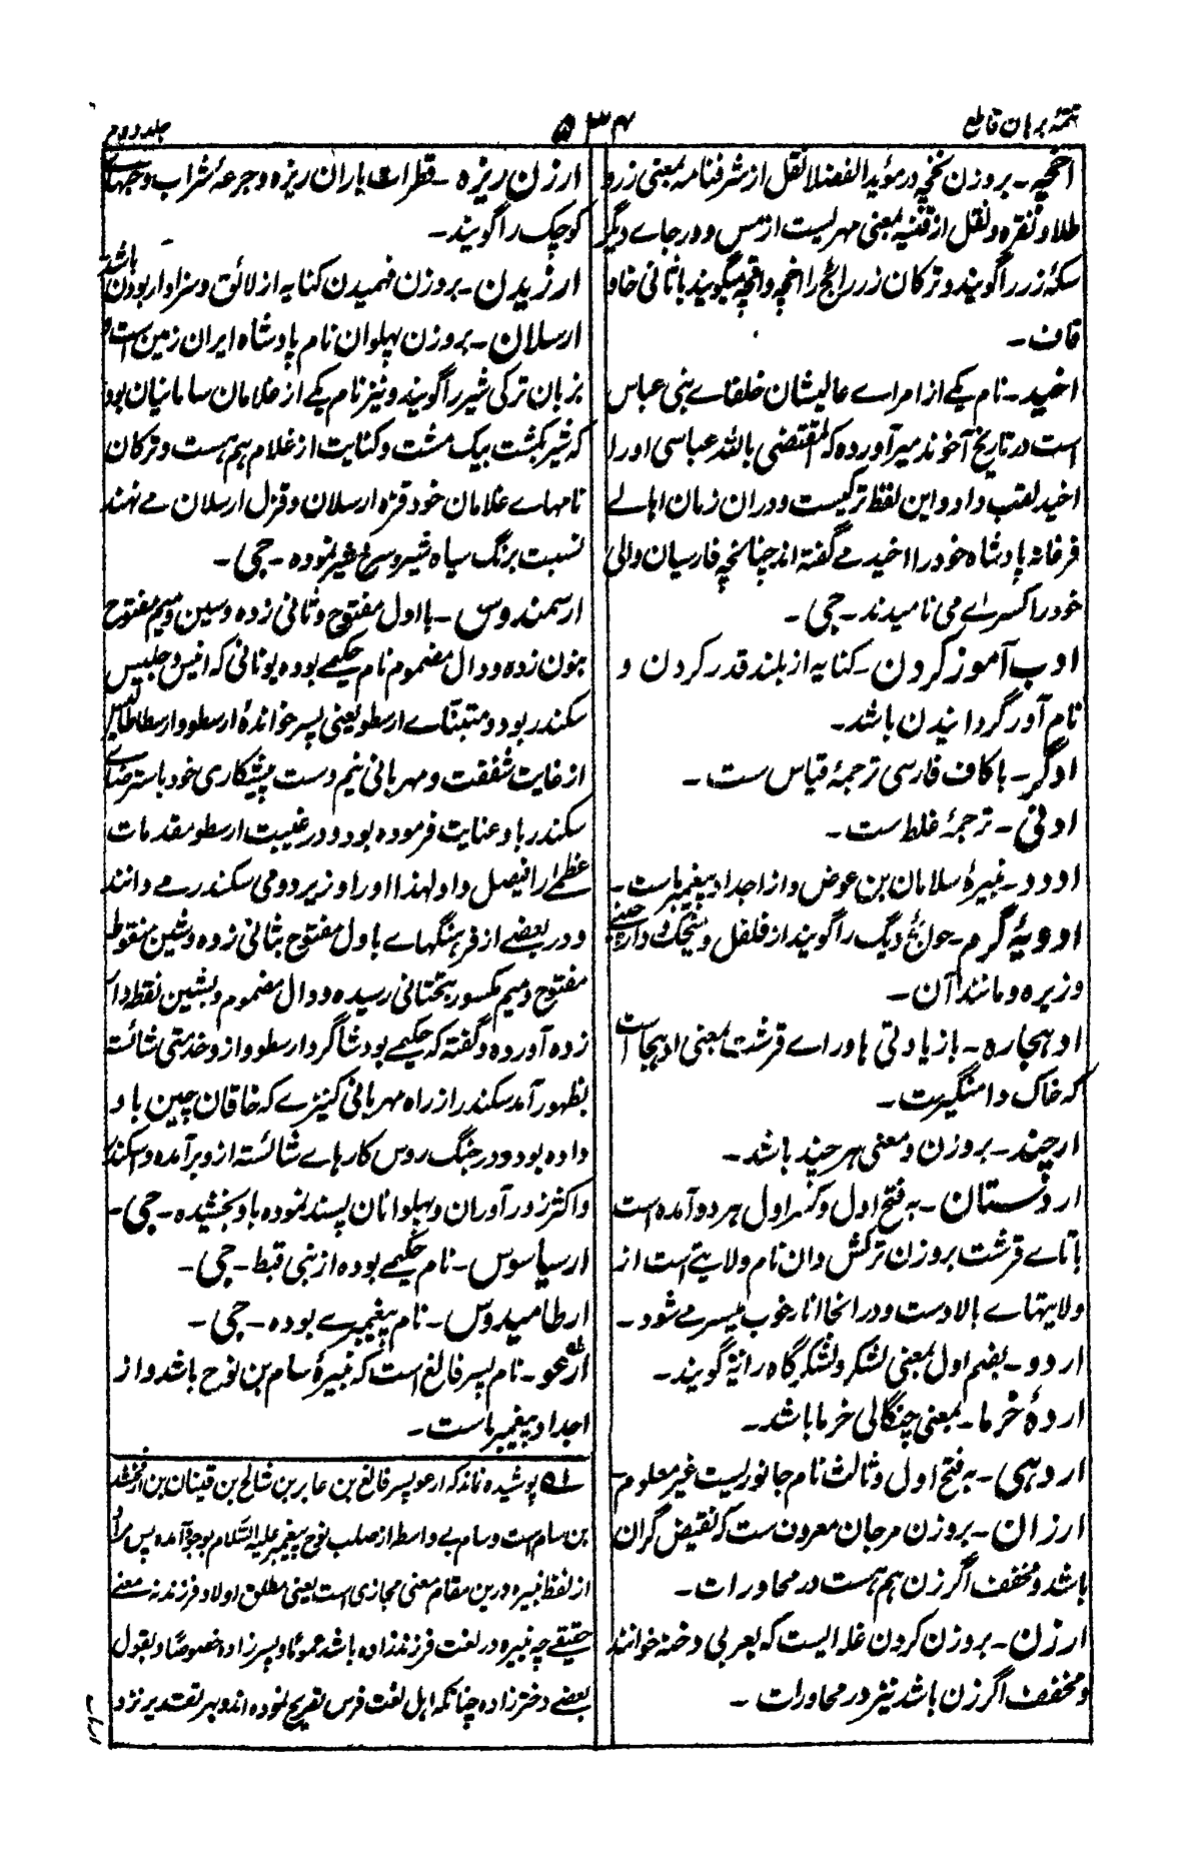 تتمهٔ برهان قاطع
۵۳۴
جلد دوم
اخچه - بروزن نخچه در مؤید الفضلا نقل از شرفنامه بمعنی زر و
طلا و نقره و نقل از قنیه بمعنی مهر لیست از مس و در جاے دیگر
سکهٔ زر را گویند و ترکان زر رائج را اخچه و اقچه میگویند با ثانی خا و
قاف -
اخید - نام یکے از امراے عالیشان خلفاے بنی عباس
است در تاریخ آخوند میر آورده که المقتضی بالله عباسی او را
اخید لقب داد و این لفظ ترکیست و دران زمان اہالے
فرغانه پادشاه خود را اخید مے گفته اند چنانچه فارسیان والی
خود را کسرے می نامیدند - جی -
ادب آموز کردن - کنایه از بلند قدر کردن و
نام آور گردانیدن باشد -
ادگر - با کاف فارسی ترجمهٔ قیاس ست -
ادنی - ترجمهٔ غلط ست -
ادود - نبیرهٔ سلامان بن عوض و از اجداد پیغمبر ماست -
ادویهٔ گرم - حوائج دیگ را گویند از فلفل و میخک و دارچینی
و زیره و مانند آن -
ادہجاره - با زیادتی ہا و راے قرشت بمعنی ادہجا است
که خاک دامنگیرست -
ارچند - بروزن و معنی ہر چند باشد -
اردستان - به فتح اول و کسر اول ہر دو آمده است
با تاے قرشت بروزن ترکش دان نام ولایتے است از
ولایتہاے بالادست و در انجا انار خوب میسر مے شود -
اردو - بضم اول بمعنی لشکر و لشکرگاه را نیز گویند -
اردهٔ خرما - بمعنی چنگالی خرما باشد -
اردہی - به فتح اول و ثالث نام جانوریست غیر معلوم -
ارزان - بروزن مرجان معروف ست که نقیض گران
باشد و مخفف اگر زن ہم ہست در محاورات -
ارزن - بروزن کردن غله ایست که بعربی دخنه خوانند
و مخفف اگر زن باشد نیز در محاورات -
ارزن ریزه - قطرات باران ریزه و جرعهٔ شراب و حبہاے
کوچک را گویند -
ارزیدن - بروزن فہمیدن کنایه از لائق و سزاوار بودن باشد
ارسلان - بروزن پہلوان نام پادشاه ایران زمین است و
بزبان ترکی شیر را گویند و نیز نام یکے از غلامان سامانیان بود
که شیر بکشت بیک مشت و کنایت از غلام ہم ہست و ترکان
نامہاے غلامان خود قره ارسلان و قزل ارسلان مے نہند
نسبت برنگ سیاه شیر و سرخ شیر نموده - جی -
ارسمندوس - با اول مفتوح و ثانی زده و سین و میم مفتوح
بنون زده و دال مضموم نام حکیمے بوده یونانی که انیس و جلیس
سکندر بود و متبناے ارسطو یعنی پسر خواندهٔ ارسطو و ارسطاطالیس
از غایت شفقت و مہربانی نیم دست پیشکاری خود باسترضاے
سکندر باو عنایت فرموده بود و در غیبت ارسطو مقدمات
عظمے را فیصل داد لہذا او را وزیر دومی سکندر مے دانند
و در بعضے از فرہنگہاے با اول مفتوح بثانی زده و شین منقوطه
مفتوح و میم مکسور بتحتانی رسیده و دال مضموم و بشین نقطه دار
زده آورده و گفته که حکیمے بود شاگرد ارسطو و ازو خدمتی شائسته
بظہور آمد سکندر از راه مہربانی کنیزے که خاقان چین باو
داده بود و در جنگ روس کارہاے شائسته ازو برآمده و سکندر
و اکثر زورآوران و پہلوانان پسند نموده باو بخشیده - جی -
ارسیاسوس - نام حکیمے بوده از بنی قبط - جی -
ارطامیدوس - نام پیغمبرے بوده - جی -
ارعو - نام پسر فالغ است که نبیرهٔ سام بن نوح باشد و از
اجداد پیغمبر ماست -
پوشیده نماند که ارعو پسر فالغ بن عابر بن شالخ بن قینان بن ارفخشد
بن سام است و سام بے واسطه از صلب نوح پیغمبر علیه السلام بوجود آمده پس مراد
از لفظ نبیره درین مقام معنی مجازی است یعنی مطلق اولاد و فرزند نه معنے
حقیقے چه نبیره در لغت فرزند زاده باشد عموماً و پسر زاده خصوصاً و بقول
بعضے دختر زاده چنانکه اہل لغت فرس تصریح نموده اند و بہر تقدیر نزد
ارباب